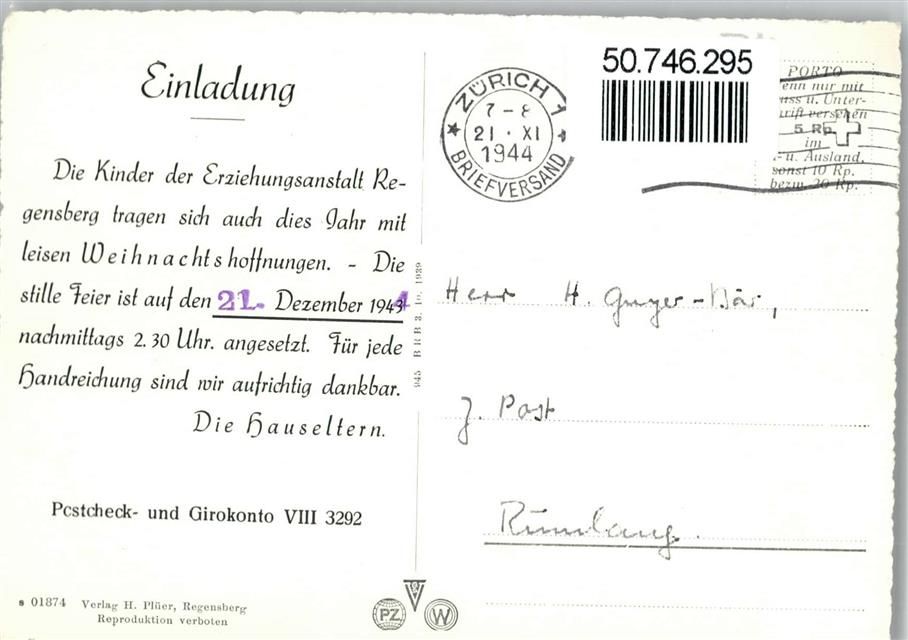 Einladung
Die Kinder der Erziehungsanstalt Re-
gensberg tragen sich auch dies Jahr mit
leisen Weihnachtshoffnungen. - Die
stille Feier ist auf den 21. Dezember 1944
nachmittags 2.30 Uhr. angesetzt. Für jede
Handreichung sind wir aufrichtig dankbar.
Die Hauseltern.
Postcheck- und Girokonto VIII 3292
s 01874 Verlag H. Plüer, Regensberg
Reproduktion verboten
945 BRB 3. 10. 1939
PZ
W
ZÜRICH 1
7-8
21·XI
1944
BRIEFVERSAND
50.746.295
PORTO
enn nur mit
uss u. Unter-
rift versehen
5 Rp.
im
-u. Ausland,
sonst 10 Rp.
bezw. 20 Rp.
Herr H.
z. Post
Rümlang.